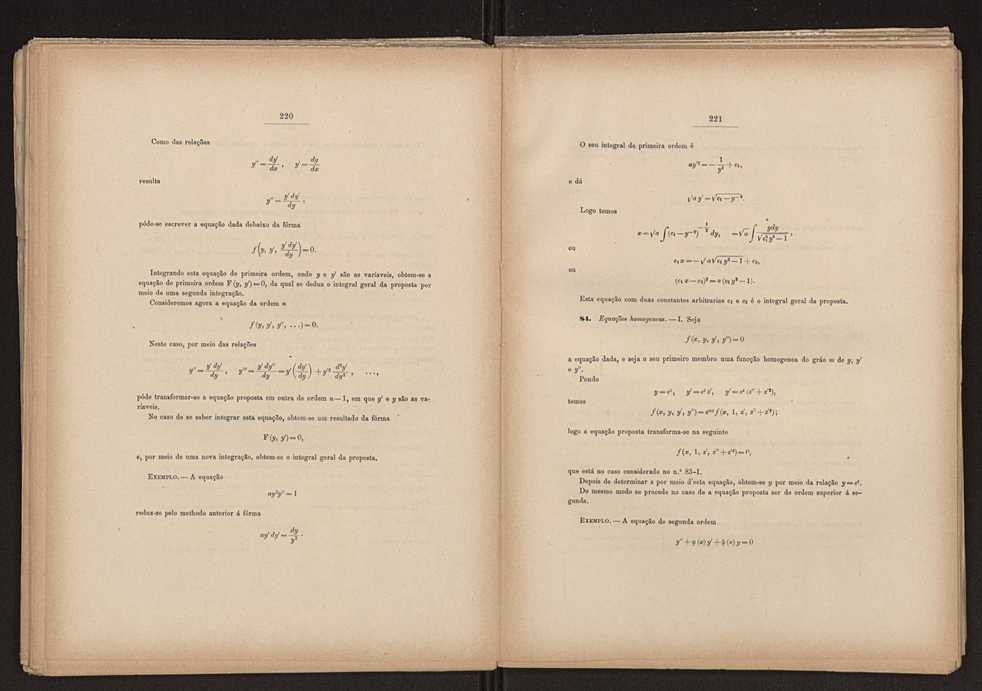 220
Como das relações
y″ = dy′/dx , y′ = dy/dx
resulta
y″ = y′ dy′/dy ,
póde-se escrever a equação dada debaixo da fórma
f(y, y′, y′ dy′/dy) = 0.
Integrando esta equação de primeira ordem, onde y e y′ são as variaveis, obtem-se a
equação de primeira ordem F (y, y′) = 0, da qual se deduz o integral geral da proposta por
meio de uma segunda integração.
Consideremos agora a equação da ordem n
f (y, y′, y″, ...) = 0.
Neste caso, por meio das relações
y″ = y′ dy′/dy , y‴ = y′ dy″/dy = y′ (dy′/dy) + y′² d²y′/dy² , ...,
póde transformar-se a equação proposta em outra de ordem n — 1, em que y′ e y são as va-
riaveis.
No caso de se saber integrar esta equação, obtem-se um resultado da fórma
F (y, y′) = 0,
e, por meio de uma nova integração, obtem-se o integral geral da proposta.
EXEMPLO. — A equação
ay³y″ = 1
reduz-se pelo methodo anterior á fórma
ay′ dy′ = dy/y³ .
221
O seu integral de primeira ordem é
ay′² = — 1/y² + c₁,
e dá
√a y′ = √c₁ — y⁻².
Logo temos
x = √a ∫ (c₁ — y⁻²)^(-1/2) dy, = √a ∫ ydy/√c₁ y² — 1 ,
ou
c₁ x = — √a √c₁ y² — 1 + c₂,
ou
(c₁ x — c₂)² = a (c₁ y² — 1).
Esta equação com duas constantes arbitrarias c₁ e c₂ é o integral geral da proposta.
84. Equações homogeneas. — I. Seja
f (x, y, y′, y″) = 0
a equação dada, e seja o seu primeiro membro uma funcção homogenea do gráo m de y, y′
e y″.
Pondo
y = eᶻ, y′ = eᶻ z′, y″ = eᶻ (z″ + z′²),
temos
f (x, y, y′, y″) = eᵐᶻ f (x, 1, z′, z″ + z′²);
logo a equação proposta transforma-se na seguinte
f (x, 1, z′, z″ + z′²) = 0,
que está no caso considerado no n.º 83-I.
Depois de determinar z por meio d'esta equação, obtem-se y por meio da relação y = eᶻ.
Do mesmo modo se procede no caso de a equação proposta ser de ordem superior á se-
gunda.
EXEMPLO. — A equação de segunda ordem
y″ + φ (x) y′ + ψ (x) y = 0